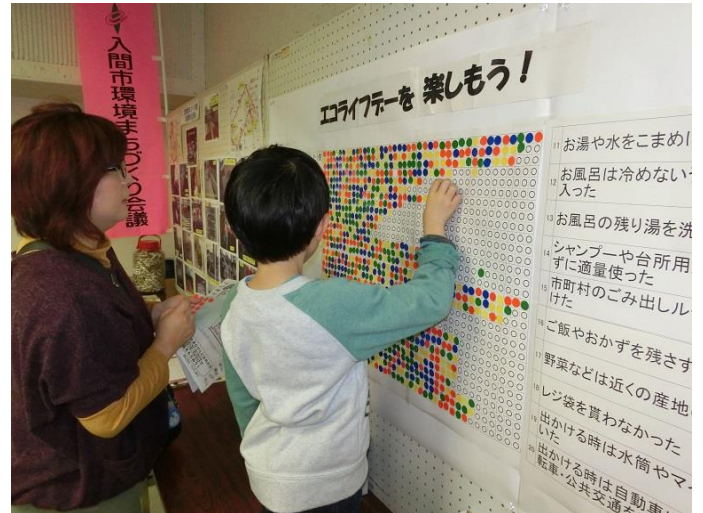 入間市環境まちづくり会議
エコライフデーを 楽しもう!
11 お湯や水をこまめに
12 お風呂は冷めない
入った
13 お風呂の残り湯を洗
14 シャンプーや台所用
ずに適量使った
15 市町村のごみ出しル
けた
16 ご飯やおかずを残さず
17 野菜などは近くの産地
18 レジ袋を貰わなかった
19 出かける時は水筒やマイ
いた
20 出かける時は自動車
転車・公共交通